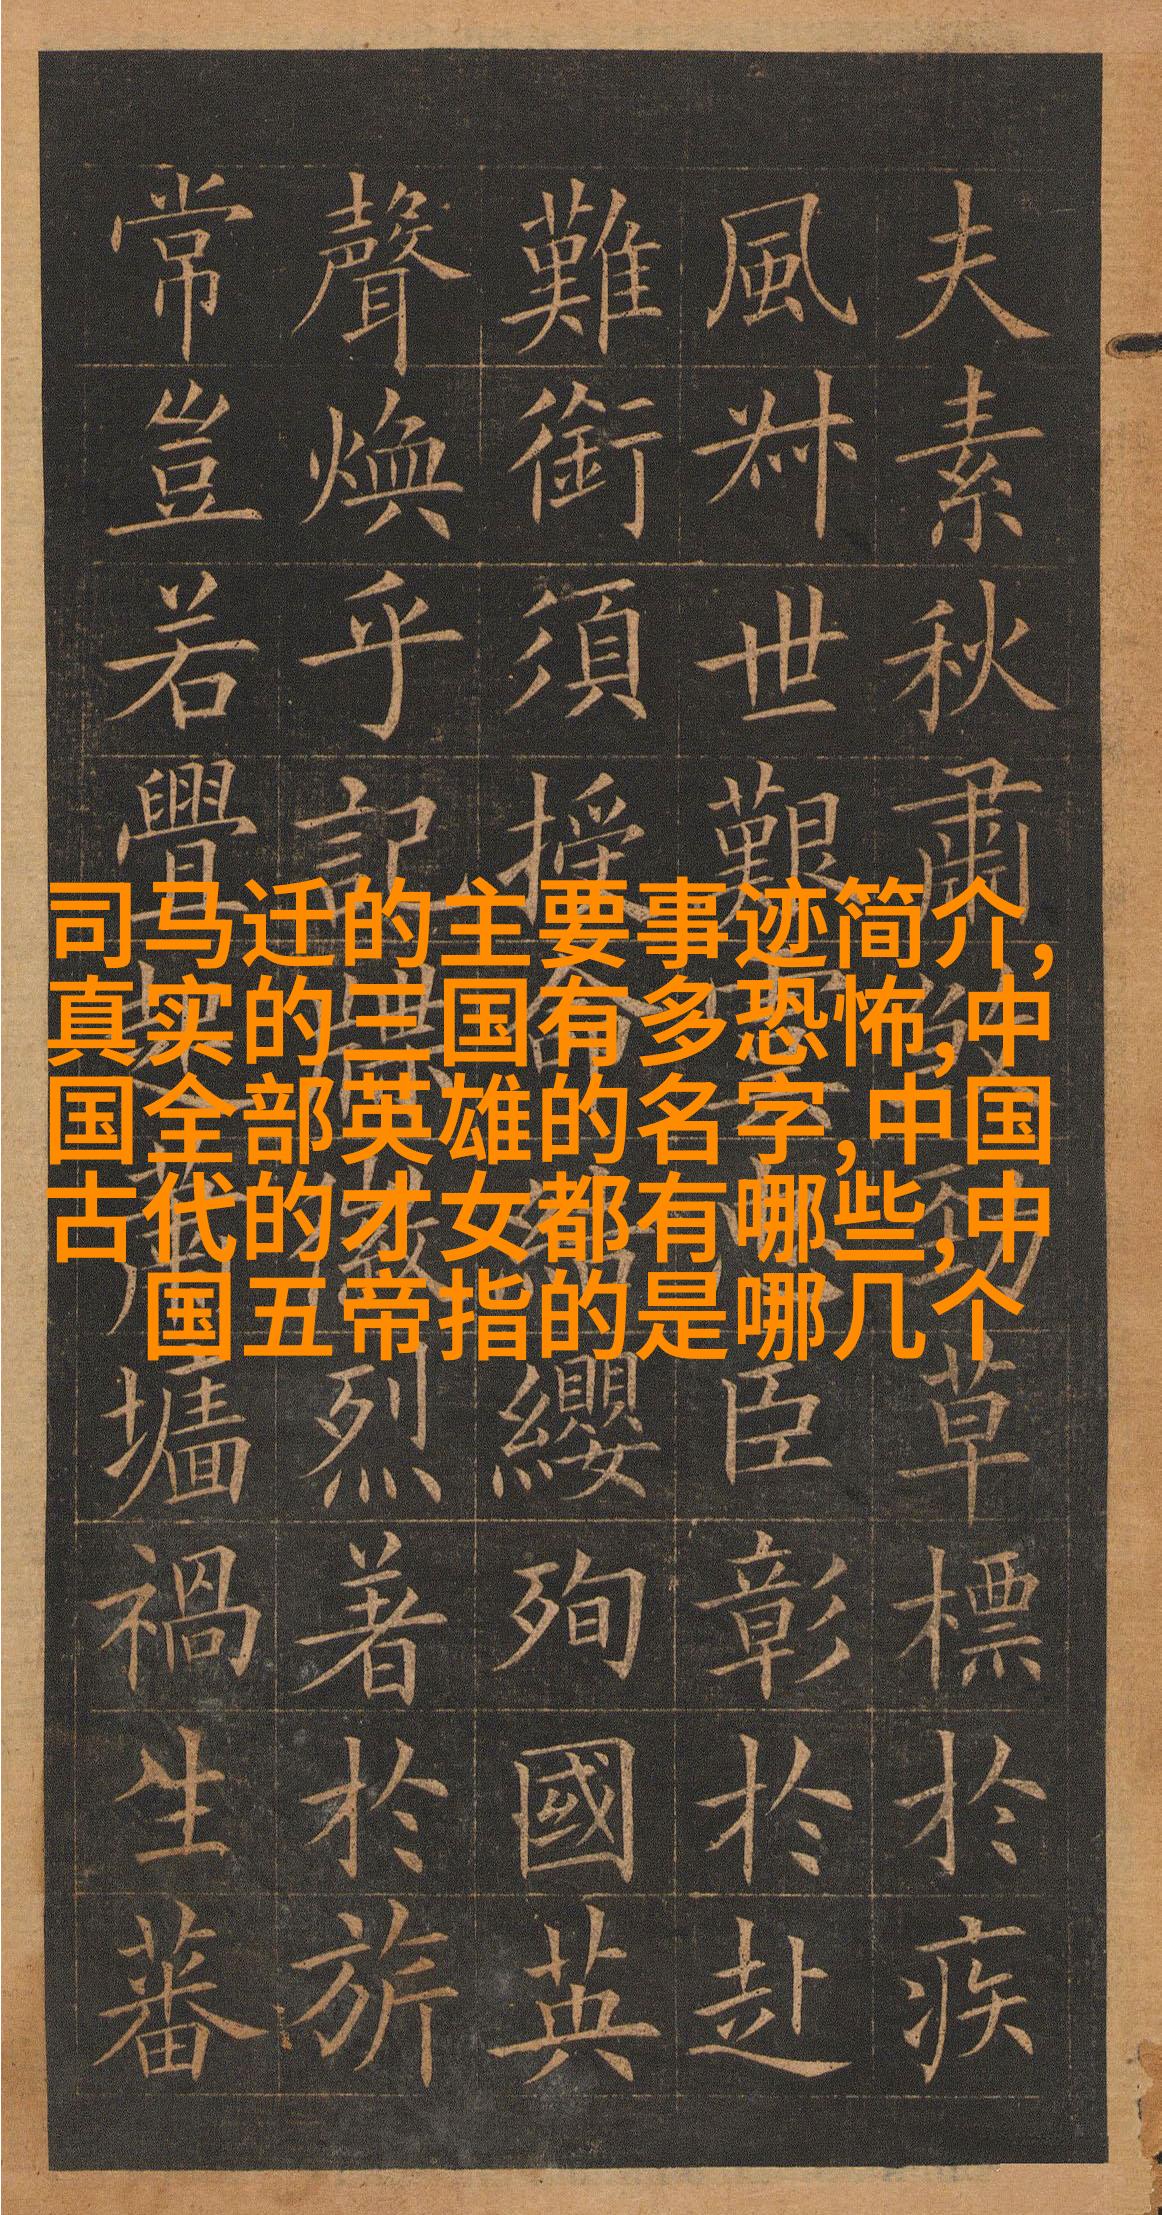 夫素秋肅勁草標於疾
風叔世艱臣彰於赴
難銜須授命纓殉國英
聲煥乎記烈著於旂
常豈若釁蕭墻禍生蕃
司马迁的主要事迹简介,
真实的三国有多恐怖,中
国全部英雄的名字,中国
古代的才女都有哪些,中
国五帝指的是哪几个